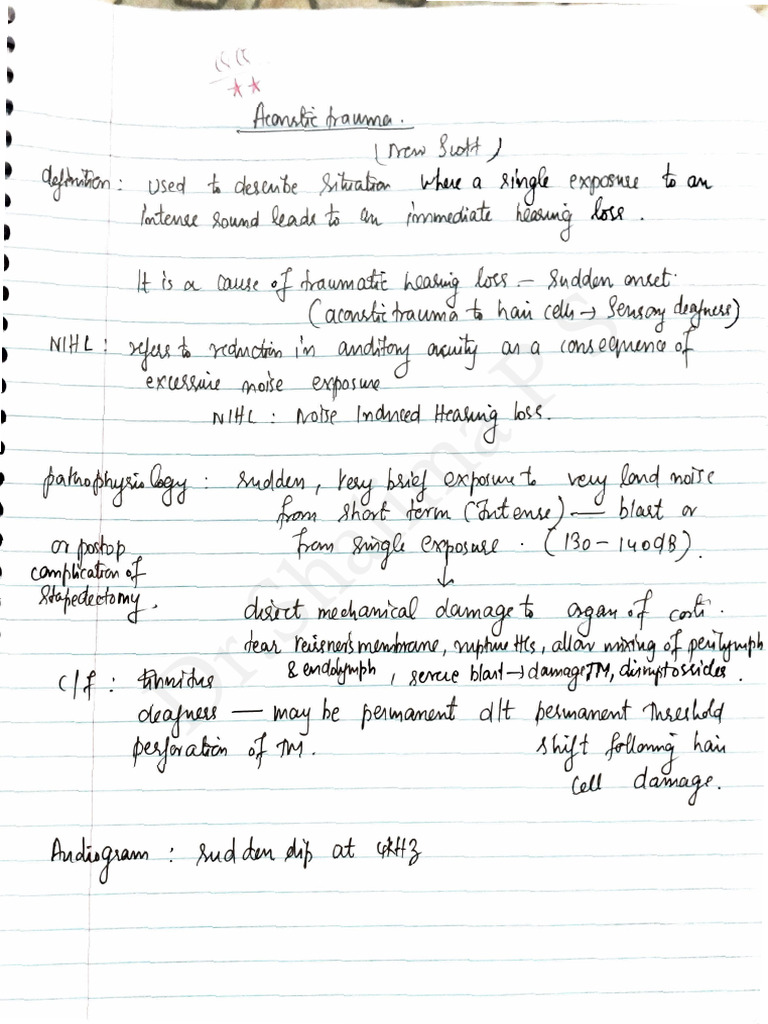 Acoustic trauma.
(New Scott)
definition : Used to describe situation where a single exposure to an
intense sound leads to an immediate hearing loss.
It is a cause of traumatic hearing loss – sudden onset.
(acoustic trauma to hair cells → sensory deafness)
NIHL : refers to reduction in auditory acuity as a consequence of
excessive noise exposure
NIHL : Noise Induced Hearing loss.
pathophysiology : sudden, very brief exposure to very loud noise
from short term (Intense) — blast or
from single exposure. (130-140dB).
or postop
complication of
stapedectomy.
↓
direct mechanical damage to organ of corti.
tear reissners membrane, rupture HCs, allow mixing of perilymph
& endolymph, severe blast → damage TM, disrupt ossicles.
C/f : tinnitus
deafness — may be permanent d/t permanent threshold
shift following hair
cell damage.
perforation of TM.
Audiogram : sudden dip at 4kHz
Dr. Sharima P S